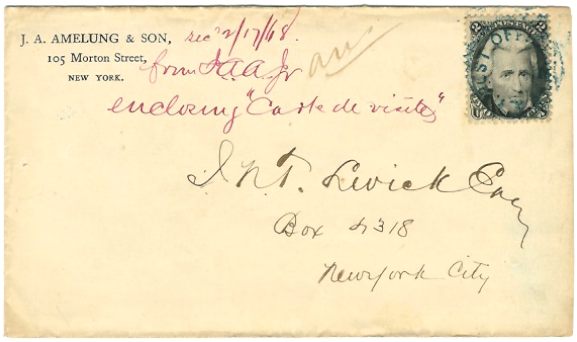 J. A. AMELUNG & SON,
105 Morton Street,
NEW YORK.
rec 2/17/68
from J A A Jr
ans
enclosing "Carte de visites"
POST OFFI
J N T. Levick Esq
Box 4318
New york City